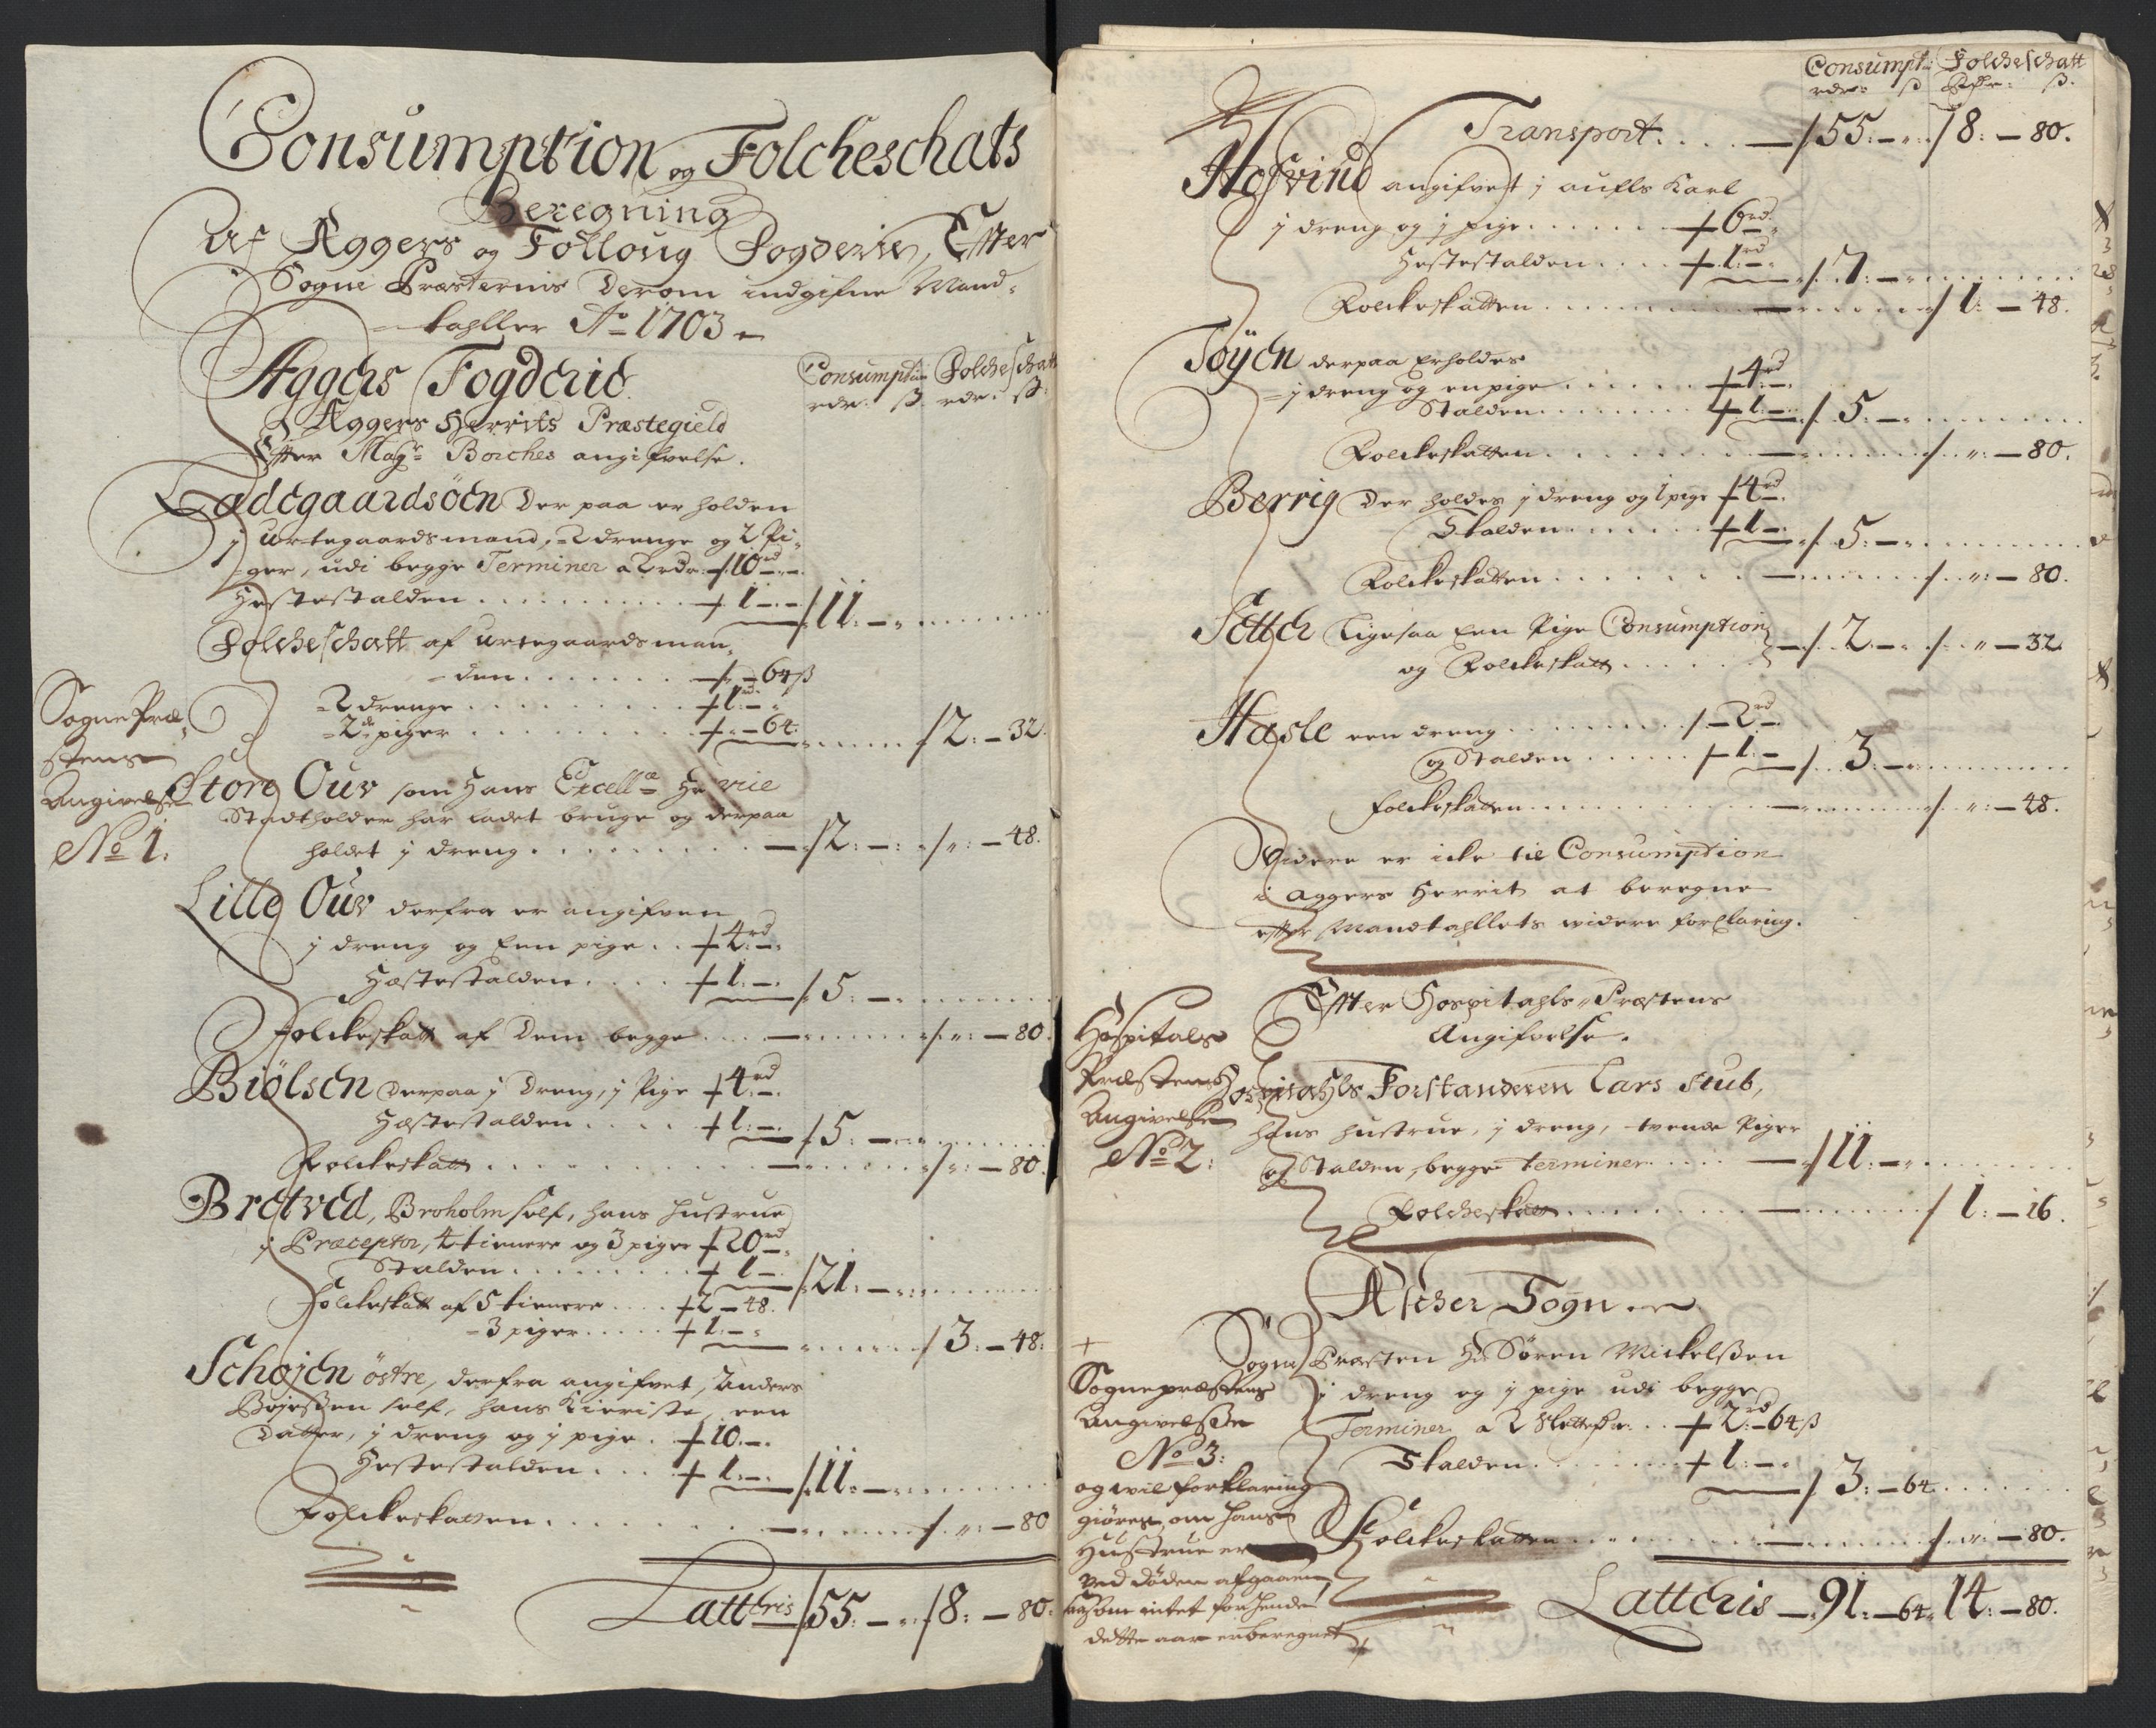 Consumption og Folcheschats
Beregning
Af Aggers og Folloug Fogderie, Effter
Sogne Præsternis Derom indgifne Mand-
tahller Ao 1703
Aggers Fogderie
Consumption Folcheschatt
rdr: ß. rdr: ß:
Aggers Herrits Præstegield
Effter Magr: Borches angifvelse.
Ladegaardsöen Der paa er holden
j Urtegaardsmand, 2 drenge og 2 Pi-
ger, udi begge Terminer a 2 rdr 10rd –
Hestestalden 1 – 11: –
Folcheschatt af Urtegaardsman-
den – 64ß
2 drenge 1rd –
2de piger – 64. 2: – 32.
Sogne Præ-
stens
Angivelse
No 1:
Store Ouv som Hans Excellce Hr vice
Stadtholder har ladet bruge og derpaa
holdet j dreng 2: – – 48.
Lille Ouv derfra er angifven
j dreng og Een pige 4rd –
Hæstestalden 1: – 5: –
Folckeskatt af Dem begge – 80.
Biölsen Derpaa j Dreng, j Pige 4rd –
Hæstestalden 1: – 5: –
Folckeskatt – 80.
Bretved, Broholm self, hans Hustrue
j Præceptor, 4 tienere og 3 piger 20rd –
Stalden 1 – 21: –
Folckeskatt af 5 tienere 2 – 48.
3 piger 1: – 3: – 48:
Schøjen östre, derfra angifvet, Anders
self, hans Kieriste, een
Datter, j dreng og j pige 10. –
Hestestalden 1: – 11: –
Folckeskatten – 80
Lattbris 55: – 8: – 80.
Consumpt: Folcheschatt
rdr: ß Rdr: ß.
Transport 55: – 8: – 80.
Hofvind angifvet j aufls Karl
j dreng og j pige 6rd –
Hestestalden 1rd – 7: –
Folckeskatten 1: – 48.
Töyen derpaa Erholdes
j dreng og en pige 4rd –
Stalden 1: – 5: –
Folckeskatten – 80.
Berrig Der holdes j dreng og 1 pige 4rd –
Stalden 1 – 5: –
Folckeskatten – 80.
Setter Ligesaa Een Pige Consumption
og Folckeskatt 2 – – 32
Hasle een dreng 2rd –
og Stalden 1: – 3: –
Folckeskatten – 48.
Widere er icke til Consumption
i Aggers Herrit at beregne
efter Mandtahllets widere forklaring.
Effter Hospitahls Præstens
Angifvelse.
Hospitals
Præstens
Angivelse
No 2:
Hospitahls Forstanderen Lars Stub,
hans hustrue, j dreng, tvende Piger
og Stalden, begge terminer 11: –
Folcheskatt 1: – 16.
Ascher Sogn
Sogne Præsten Hr Søren Mickelßen
j dreng og j pige udi begge
Terminer a 2 Slettedr. 2rd – 64ß
Stalden 1: – 3: – 64
Folckeskatten – 80.
+
Sognepræstens
Angivelsse
No 3:
og vil forklaring
giöres, om hans
Hustrue er
ved döden afgaaen,
saasom intet for hende
dette aar er beregnet
Latteris 91: – 64. 14: – 80.